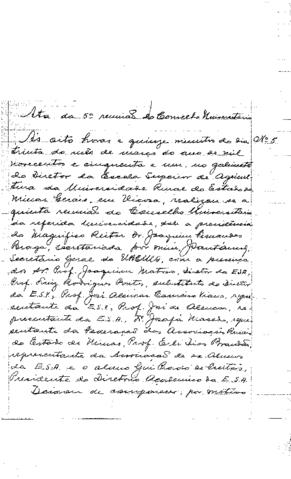 Ata da 5ª reunião do Conselho Universitário
Nº 5
Às oito horas e quinze minutos do dia
trinta do mês de março do ano de mil
novecentos e cinquenta e um, no gabinete
do Diretor da Escola Superior de Agricul-
tura da Universidade Rural do Estado de
Minas Gerais, em Viçosa, realizou-se a
quinta reunião do Conselho Universitário
da referida Universidade, sob a presidência
do Magnífico Reitor Dr. Joaquim Fernandes
Braga, secretariada por mim,
Secretário Geral da UREMG, com a presença
dos Sr. Prof. Joaquim Matoso, diretor da ESA,
Prof. Luiz Rodrigues substituto do diretor
da E.S.V., Prof. José repre-
sentante da E.S.V., Prof. José de Alencar, re-
presentante da E.S.A., Dr. Josafá Macedo, repre-
sentante da Federação das Associações Rurais
do Estado de Minas, Prof. Erly Dias Brandão,
representante da Associação de ex-Alunos
da E.S.A. e o aluno Gui
Presidente do Diretório Acadêmico da E.S.A.
Deixaram de comparecer, por motivo